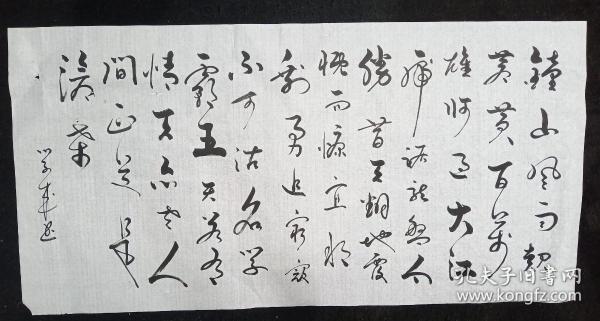 鐘山风雨起
苍黄百萬
雄师过大江
虎踞龙盘今
胜昔天翻地覆
慨而慷宜将
剩勇追穷寇
不可沽名学
霸王天若有
情天亦老人
间正道是
沧桑
孔夫子旧书网
www.kongfz.com